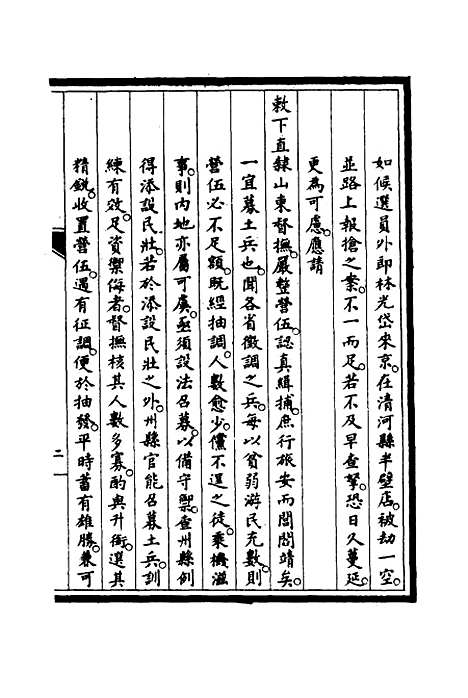 如候選員外郎林光岱來京。在清河縣半壁店。被劫一空。
並路上報搶之案。不一而足。若不及早查拏。恐日久蔓延。
更為可慮。應請
敕下直隸山東督撫。嚴整營伍。認真緝捕。庶行旅安而閭閻靖矣。
一宜募土兵也。聞各省徵調之兵。每以貧弱游民充數。則
營伍必不足額。既經抽調。人數愈少。儻不逞之徒。乘機滋
事。則內地亦屬可虞。亟須設法召募。以備守禦。查州縣例
得添設民壯。若於添設民壯之外。州縣官能召募土兵。訓
練有效。足資禦侮者。督撫核其人數多寡。酌與升銜。選其
精銳。收置營伍。遇有征調。便於抽發。平時蓄有雄勝。兼可
二